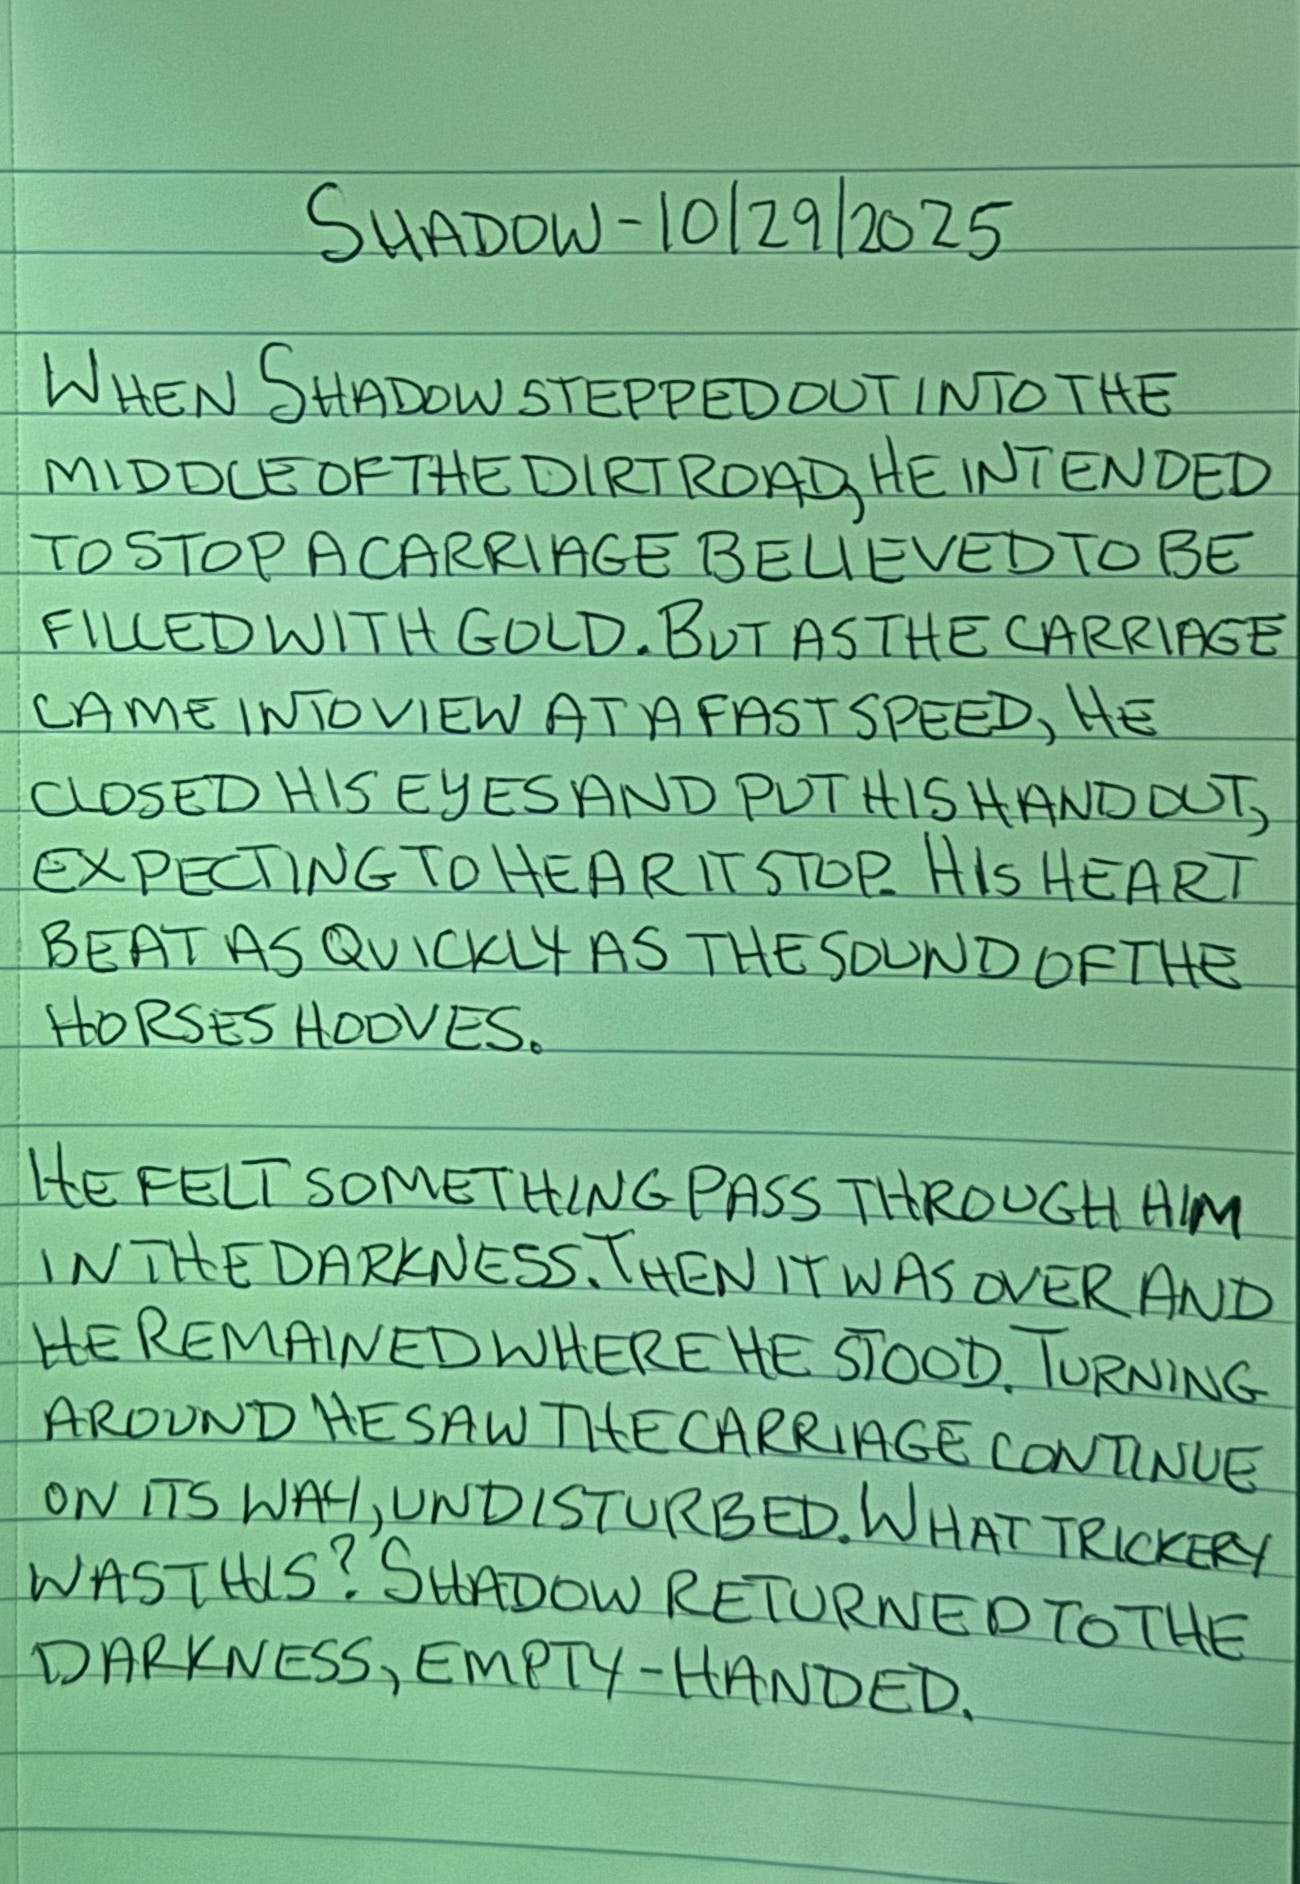 SHADOW - 10/29/2025
WHEN SHADOW STEPPED OUT INTO THE
MIDDLE OF THE DIRT ROAD, HE INTENDED
TO STOP A CARRIAGE BELIEVED TO BE
FILLED WITH GOLD. BUT AS THE CARRIAGE
CAME INTO VIEW AT A FAST SPEED, HE
CLOSED HIS EYES AND PUT HIS HAND OUT,
EXPECTING TO HEAR IT STOP. HIS HEART
BEAT AS QUICKLY AS THE SOUND OF THE
HORSES HOOVES.
HE FELT SOMETHING PASS THROUGH HIM
IN THE DARKNESS. THEN IT WAS OVER AND
HE REMAINED WHERE HE STOOD. TURNING
AROUND HE SAW THE CARRIAGE CONTINUE
ON ITS WAY, UNDISTURBED. WHAT TRICKERY
WAS THIS? SHADOW RETURNED TO THE
DARKNESS, EMPTY-HANDED.